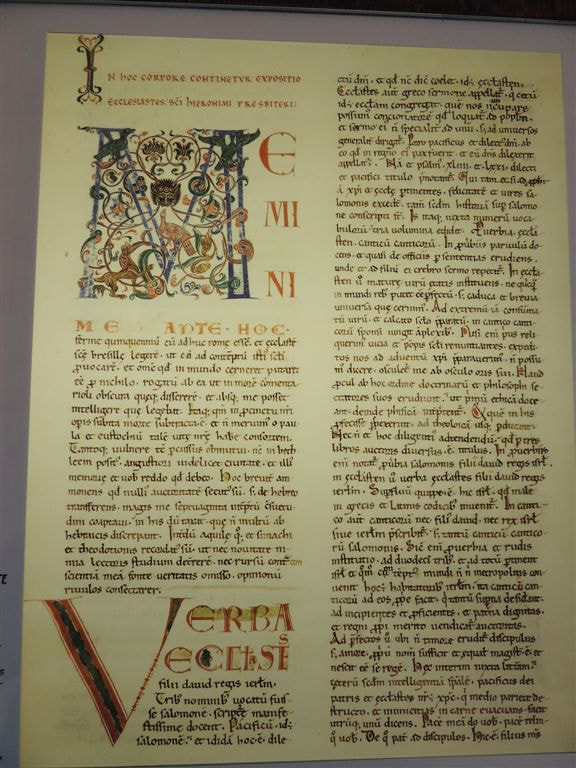 IN HOC CORPORE CONTINETVR EXPOSITIO
ECCLESIASTES. SCI HIERONIMI PRESBITERI:
MEMINI
ME ANTE HOC
ferme quinquenniū cū adhuc romę essē. et ecclīasten
scę bresille legerē. ut eā ad contēptū istī scłi
puocarē. et omē qd in mundo cerneret putaret
eē p nichilo. rogatū ab ea ut in morē comenta
rioli obscura queq; dissererē. et absq; me posset
intellegere que legebat. Itaq; qm in pcinctu nri
opis subita morte subtracta ē. et n meruim o pau
la et eustochiū talē uitę nrę habē consortem.
Tantoq; uulnere tē pcussus obmutui. nc in beth
leem posit. augustiori uidelicet ciuitate. et illi
memorię et uob reddo qd debeo. Hoc breuit am
monens qd nulli auctoritatē secut sū. s; de hebreo
transferens. magis me septuaginta
duim coaptaui. in his dū taxat. que n multū ab
hebraicis discrepant. Intdū aquile q; et simachi
et theodotionis recordat sū. ut nec nouitate ni
mia lectoris studium detrerē. nec rursū contra con
scientia meā. fonte ueritatis omisso. opinionū
riuulos consectarer.
VERBA
ECCLESIASTES
filii dauid regis ierlm.
Trib nominib uocatū fuis
se salomonē. scripturę manife
stissime docent. Pacificū. id;
salomonē. et ididā hoc ē dile
ctū dni. et qd nc dic coelet. id; ecclīasten.
Ecclesiastes aut greco sermone appellat. q cetū
id; ecclam congregat. quē nos ncupare
possum concionatorē. qd loquat ad pplm.
et sermo ei n specialit ad unū. s; ad uniuersos
generalit dirigat. Porro pacificus et dilect dni. ab
eo qd in regno ei pax fuerit. et eū dns dilexerit
appellat. Nā et psalm. xliiii. et lxxi. dilecti
et pacifici titulo pnotant. Qui tam et si ad pphiā
xpi et ecclę ptinentes. felicitatē et uires sa
lomonis excedt. tam scdm historiā sup salomo
ne conscripti st. Is itaq; iuxta numerū uoca
bulorū tria uolumina edidit. Puerbia. eccli
sten. canticū canticorū. In puerbiis paruulū do
cens. et quasi de officiis p sententias erudiens.
unde et ad filiū ei crebro sermo repetit. In ecclīa
sten ū maturę uirū ętatis instituens. ne quicq;
in mundi reb putet eē ppetuū. s; caduca et breuia
uniuersa que cernim. Ad extremū iā consūma
tū uirū. et calcato sclo pparatū. in cantico canti
corū sponsi iungit aplexib. Nisi eni pus reli
querim uicia et popis scłi renuntiantes. expedi
tos nos ad aduentū xpi pparauerim. n possum
dicere. osculet me ab osculo oris sui. Haud
pcul ab hoc ordine doctrinarū et philosophi se
ctatores suos erudiunt. ut primū ethica doce
ant. deinde phisica intptent. Et que in his
pfecissę pspexerint. ad theoloica usq; pducant.
Nec n et hoc diligent attendendū. qd p tres
libros auctoris diuersus ē titulus. In puerbiis
eni notat. puerbia salomonis filii dauid regis isrł.
In ecclīasten ū uerba ecclīastes filii dauid regis
ierlm. Supfluū quippe ē hic isrł. qd male
in grecis et latinis codicib inuenit. In canti
co aut canticorū nec filī dauid. nec rex isrł
siue ierlm pscribit. s; tantū canticū cantico
rū salomonis. Sic eni puerbia et rudis
institutio. ad duodeci trib. et ad totū ptinent
isrł. et qm cōtēpt mundi n n metropolitis con
uenit hoc; habitatorib ierlm. ita canticū can
ticorū ad eos ppe facit. q tantū supna desiderant.
ad incipientes et pficientes. et patria dignitas.
et regni ppi merito uendicat auctoritas.
Ad pfectos ū ubi n timore erudit discipulus.
s; amore. ppiū nom sufficit et equat magistro ē. et
nescit eē se regē. Hęc interim iuxta litterā.
Ceterū scdm intelligentiā spalē. pacificus dei
patris et ecclīastes nr xpc ē. q medio parietē de
structo. et inimicitias in carne euacuans. fecit
utrūq; unū dicens. Pacē meā do uob. pacē relin
q uob. De q pat ad discipulos. Hic ē filius ms